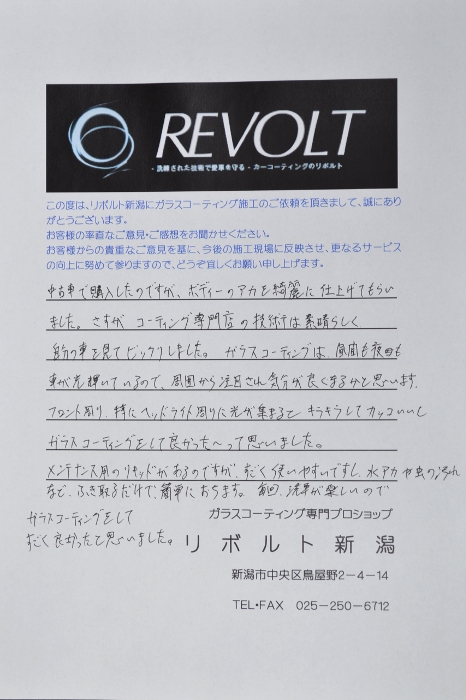 REVOLT
- 洗練された技術で愛車を守る - カーコーティングのリボルト
この度は、リボルト新潟にガラスコーティング施工のご依頼を頂きまして、誠にありがとうございます。
お客様の率直なご意見・ご感想をお聞かせください。
お客様からの貴重なご意見を基に、今後の施工現場に反映させ、更なるサービスの向上に努めて参りますので、どうぞ宜しくお願い申し上げます。
中古車で購入したのですが、ボディーのアカを綺麗に仕上げてもらい
ました。さすが コーティング専門店の技術は素晴らしく
自分の車を見てビックリしました。 ガラスコーティングは、昼間も夜間も
車が光輝いているので、周囲から注目され気分が良くなるかと思います。
フロント周り、特にヘッドライト周りに光が集まると キラキラしてカッコいいし
ガラスコーティングをして良かった〜って思いました。
メンテナンス用のリキッドがあるのですが、すごく使いやすいですし、水アカや虫の汚れ
など、ふき取るだけで簡単におちます。毎回、洗車が楽しいので
ガラスコーティングをして
すごく良かったと思いました。
ガラスコーティング専門プロショップ
リボルト新潟
新潟市中央区鳥屋野2-4-14
TEL・FAX 025-250-6712